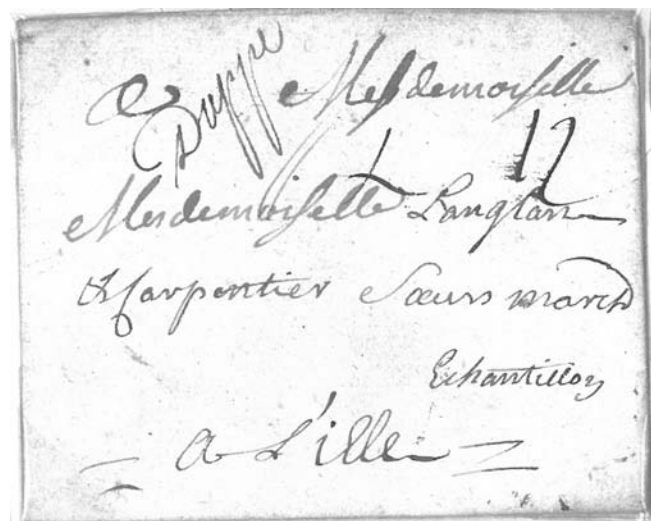 A Mesdemoiselle
Duppe
12
Mesdemoiselle Langlart
& Carpentier Sœurs march
Echantillon
a L'ille